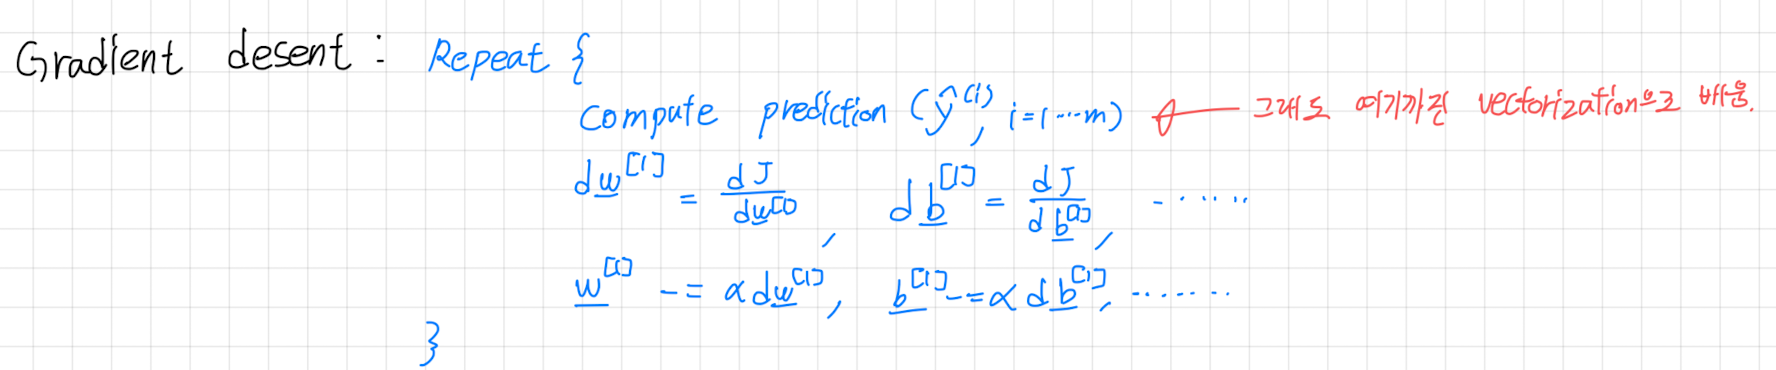 Gradient desent : Repeat {
compute prediction (ŷ^(i), i=1 ... m) ← 그래도 여기까진 vectorization으로 배움.
dw^[1] = dJ/dw^[1], db^[1] = dJ/db^[1], ......
w^[1] -= αdw^[1], b^[1] -= αdb^[1], .......
}